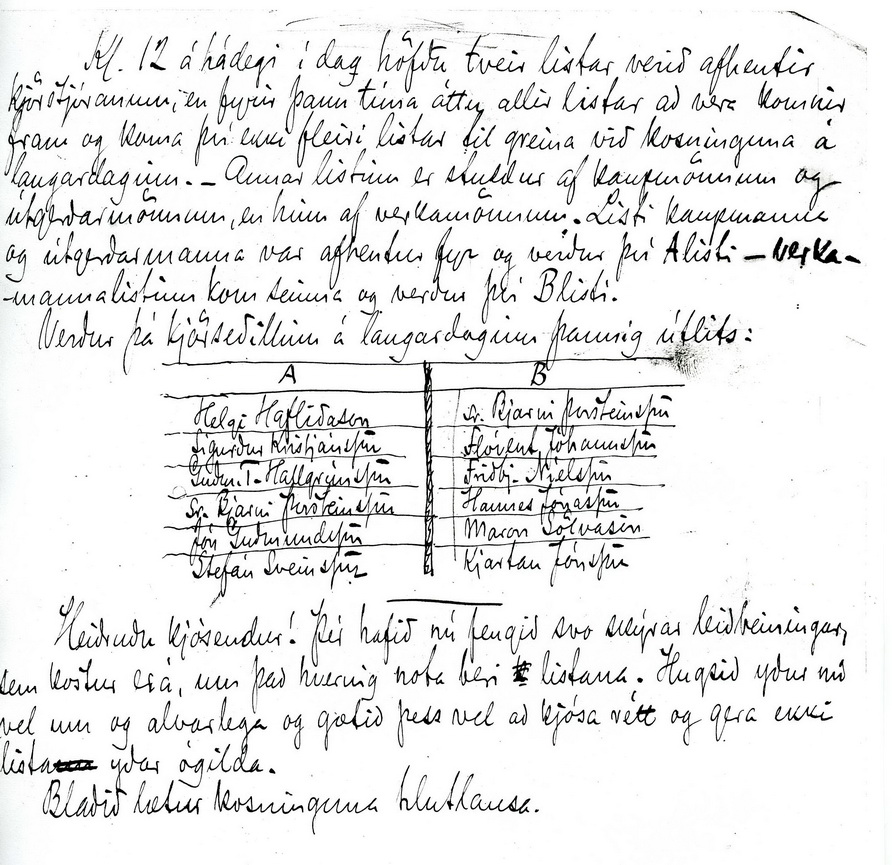 Kl. 12 á hádegi í dag höfðu tveir listar verið afhentir
kjörstjóranum, en fyrir þann tíma áttu allir listar að vera komnir
fram og koma því ekki fleiri listar til greina við kosninguna á
laugardaginn. - Annar listinn er studdur af kaupmönnum og
útgerðarmönnum, en hinn af verkamönnum. Listi kaupmanna
og útgerðarmanna var afhentur fyr og verður því A listi - verka-
-mannalistinn kom seinna og verður því B listi.
Verður þá kjörseðillinn á laugardaginn þannig útlits:
A B
Helgi Hafliðason sr. Bjarni Þorsteinsson
Sigurður Kristjánsson Flóvent Jóhannsson
Guðm. T. Hallgrímsson Friðbj. Níelsson
Sr. Bjarni Þorsteinsson Hannes Jónasson
Jón Guðmundsson Maron Sölvason
Stefán Sveinsson Kjartan Jónsson
Heiðruðu kjósendur! Þér hafið nú fengið svo skýrar leiðbeiningar,
sem kostur er á, um það hvernig nota beri listana. Hugsið yður nú
vel um og alvarlega og gætið þess vel að kjósa rétt og gera ekki
lista yðar ógilda.
Blaðið lætur kosninguna hlutlausa.